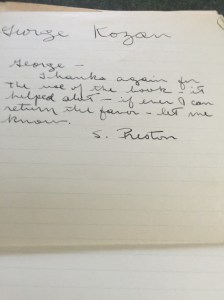 George Kozan
George —
Thanks again for
the use of the book - it
helped alot - if ever I can
return the favor - let me
know.
S. Preston